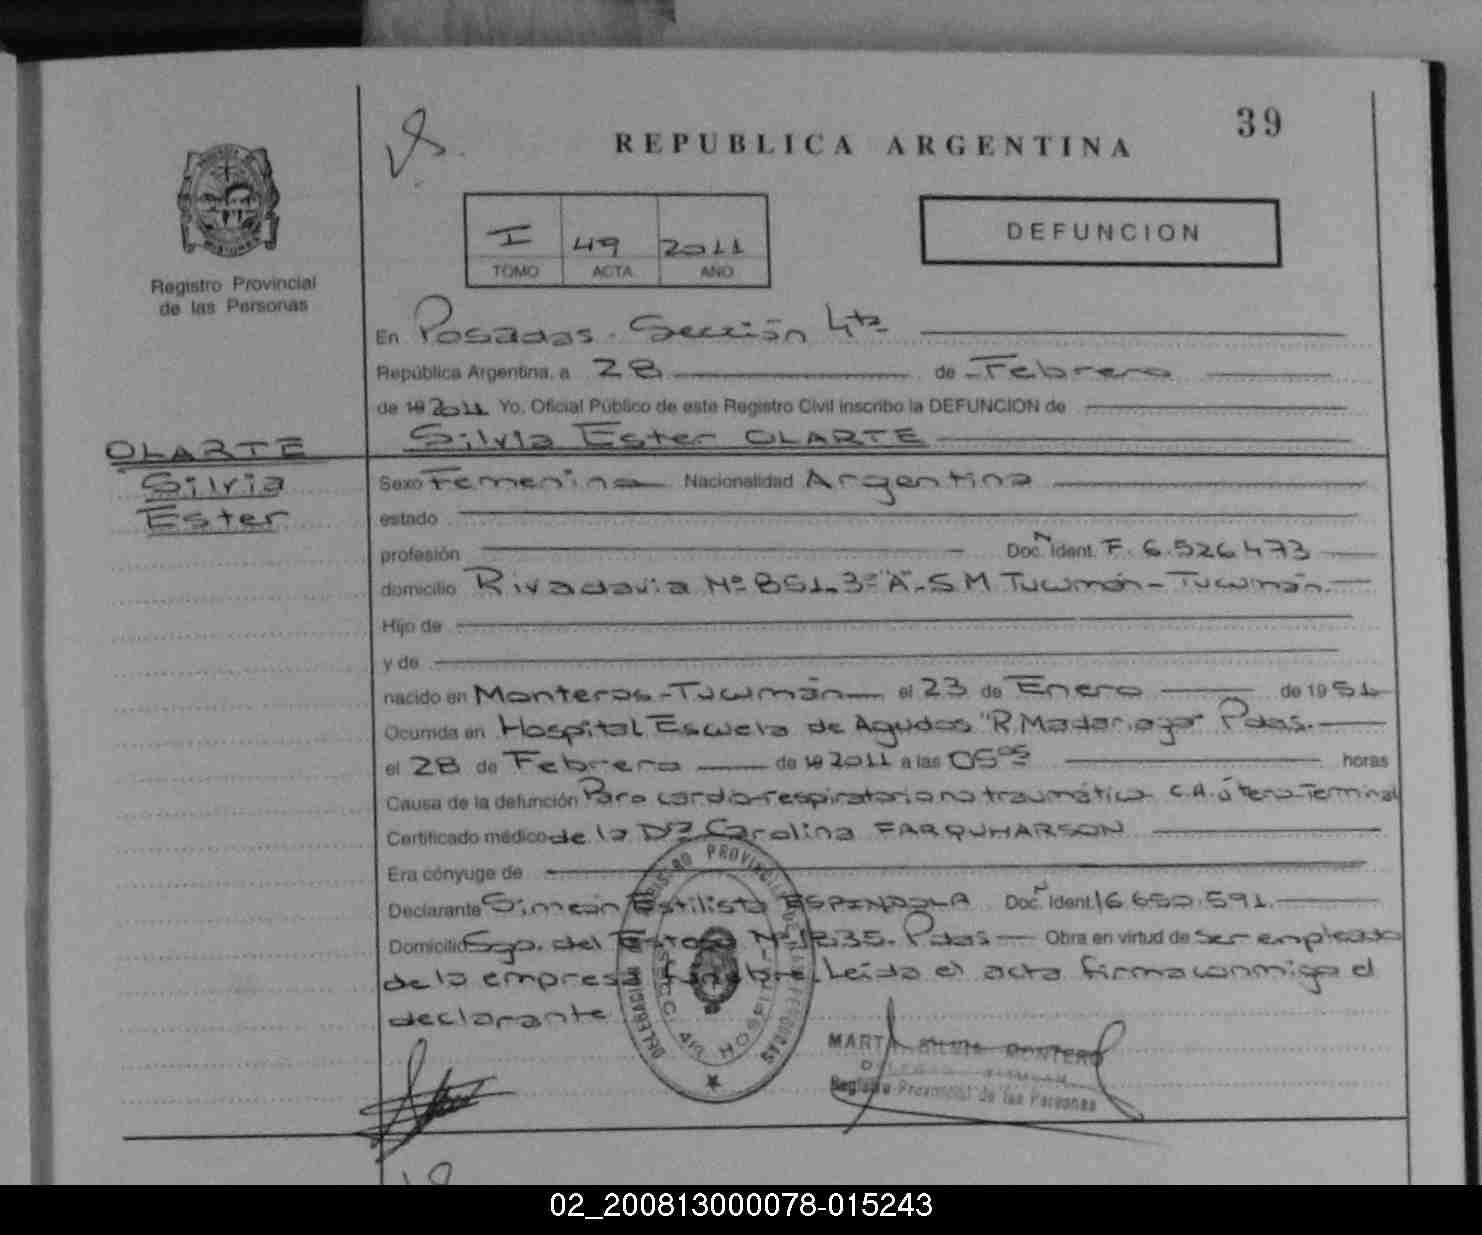 39
REPUBLICA ARGENTINA
I 49 2011
TOMO ACTA AÑO
DEFUNCION
Registro Provincial
de las Personas
En Posadas. Sección 4ta
República Argentina, a 28 de Febrero
de 19 2011 Yo, Oficial Público de este Registro Civil inscribo la DEFUNCION de
Silvia Ester OLARTE
OLARTE
Silvia
Ester
Sexo Femenino Nacionalidad Argentina
estado
profesión Doc. Ident. F. 6.526473
domicilio Rivadavia Nº 851. 3º "A". S M Tucumán - Tucumán.
Hijo de
y de
nacido en Monteros - Tucumán el 23 de Enero de 1951
Ocurrida en Hospital Escuela de Agudos "R Madariaga" Pdas.
el 28 de Febrero de 19 2011 a las 05 05 horas
Causa de la defunción Paro cardio-respiratorio no traumático C.A. útero-Terminal
Certificado médico de la Dra Carolina FARQUHARSON
Era cónyuge de
Declarante Simeón Estilisto ESPINDOLA Doc. Ident. 16.650.591.
Domicilio Sgo. del Estero Nº 1835. Pdas Obra en virtud de ser empleado
de la empresa fúnebre. Leída el acta firma conmigo el
declarante
REGISTRO PROVINCIAL DE LAS PERSONAS
DELEGACION
SECC 4ta HOSPITAL
MARTA SILVIA MONTERO
Registro Provincial de las Personas
02_200813000078-015243